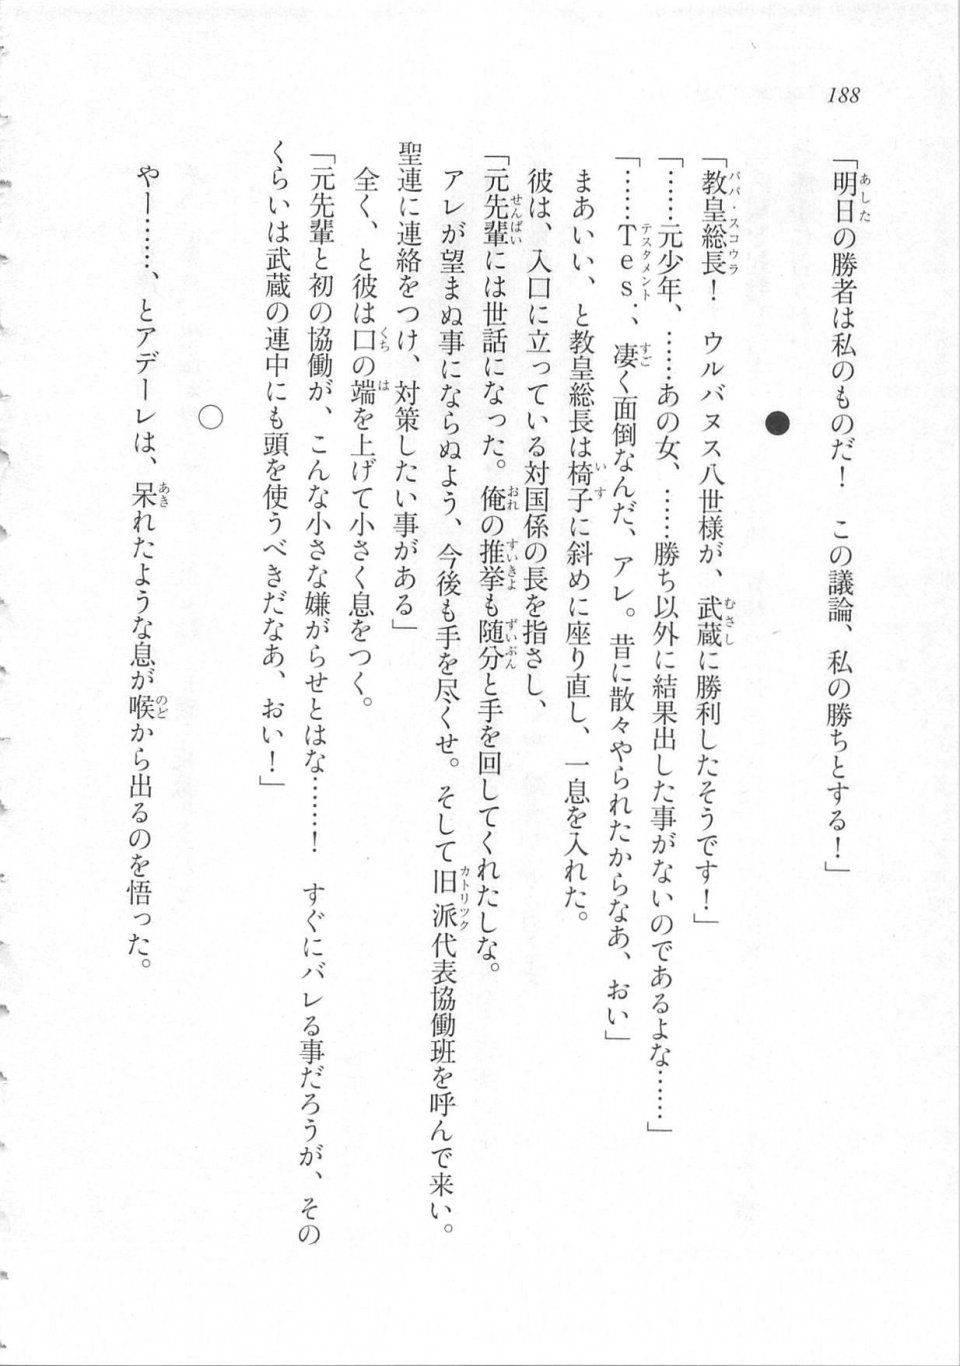 188
「明日の勝者は私のものだ！　この議論、私の勝ちとする！」
●
「教皇総長！　ウルバヌス八世様が、武蔵に勝利したそうです！」
「……元少年、……あの女、……勝ち以外に結果出した事がないのであるよな……」
「……Tes.、凄く面倒なんだ、アレ。昔に散々やられたからなあ、おい」
まあいい、と教皇総長は椅子に斜めに座り直し、一息を入れた。
彼は、入口に立っている対国係の長を指さし、
「元先輩には世話になった。俺の推挙も随分と手を回してくれたしな。
アレが望まぬ事にならぬよう、今後も手を尽くせ。そして旧派代表協働班を呼んで来い。
聖連に連絡をつけ、対策したい事がある」
全く、と彼は口の端を上げて小さく息をつく。
「元先輩と初の協働が、こんな小さな嫌がらせとはな……！　すぐにバレる事だろうが、その
くらいは武蔵の連中にも頭を使うべきだなあ、おい！」
○
やー……、とアデーレは、呆れたような息が喉から出るのを悟った。